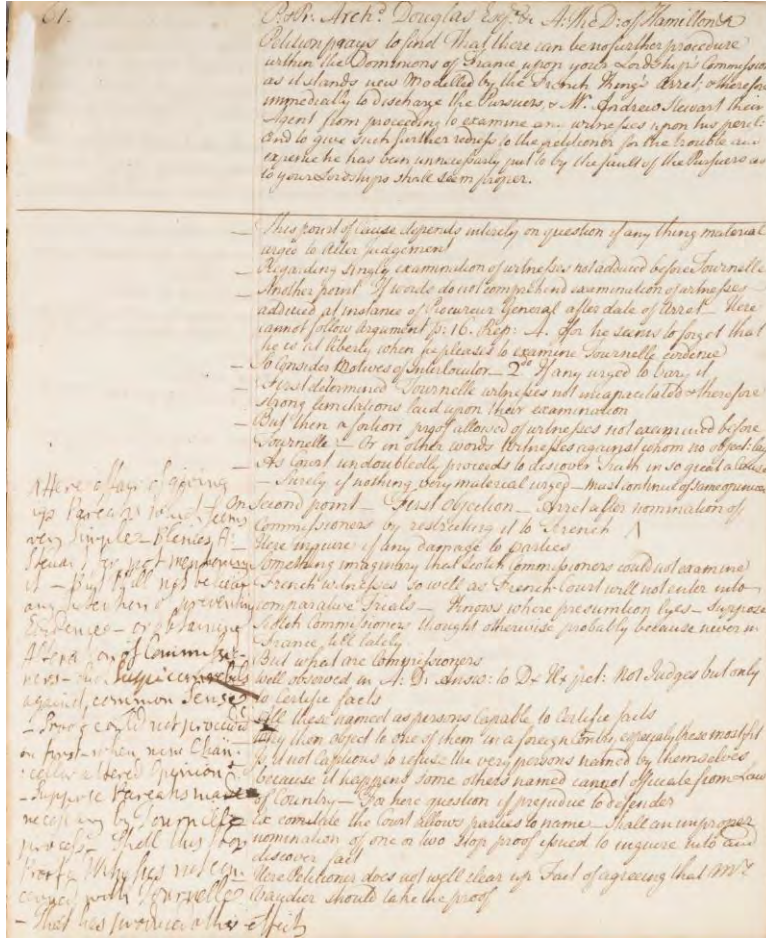 61.
P: & Pr. Archd. Douglas Esqr. & A: the D: of Hamilton &
Petition prays to find That there can be no further procedure
within the Dominions of France upon your Lordship's Commission
as it stands new Modelled by the French King's Arret; & therefore
immediatly to discharge the Pursuers, & Mr. Andrew Stewart their
Agent from proceeding to examine any witnesses upon his peril:
And to give such further redress to the petitioner for the trouble and
expence he has been unnecessarly put to by the fault of the Pursuers as
to your Lordships shall seem proper.
— This point of Cause depends intirely on question if any thing material
urged to alter Judgement
— Regarding singly examination of witnesses not adduced before Tournelle
— Another point If words do not comprehend examination of witnesses
adduced at instance of Procureur General after date of Arret — Here
cannot follow argument p: 16. Rep: A. for he seems to forget that
he is at liberty when he pleases to examine Tournelle evidence
— To Consider Motives of Interlocutor — 2do If any urged to vary it
— First determined Tournelle witnesses not incapacitated & therefore
strong limitations laid upon their examination
— But then a fortiori proof allowed of witnesses not examined before
Tournelle — Or in other words Witnesses against whom no object: lay
— As Court undoubtedly proceeds to discover Truth in so great a Cause
— Surely if nothing very material urged — must continue of same opinion
On Second point — First Objection — Arret after nomination of
Commissioners by restricting it to French /\
Here inquire if any damage to parties
Something imaginary that Scotch Commissioners could not examine
French witnesses so well as French — Court will not enter into
comparative Trials — Knows where presumtion lyes — suppose
Scotch Commissioners thought otherwise probably because never in
France till lately
But what are Commissioners
well observed in A: D: Answ: to D: H: pet: Not Judges but only
to Certifie facts
All these named as persons Capable to Certifie facts
Why then object to one of them in a foreign Contry, especialy these most fit
Is it not Captious to refuse the very persons named by themselves
because it happens some others named cannot officiate from Law
of Country — For here question if prejudice to defender
Ex comitate the Court allows parties to name — Shall an improper
nomination of one or two stop proof issued to inquire into and
discover fact
Here Petitioner does not well clear up Fact of agreeing that Mr.
Vaudier should take the proof
/\ Here affair of
up Pareatis
very simple — Blames A:
Stewart for not mentioning
it — But will not believe
any intention of preventing
Evidence — or obtaining
Alteration of Commissio-
ners — this suspicion rebels
against common Sense
— Proof could not proceed
on first — when new Chan-
cellor altered Opinion
— Suppose Pareatis made
necessary by Tournelle
process — Shall this stop
Proof of Witnesses not con-
cerned with Tournelle
— That has produced this effect